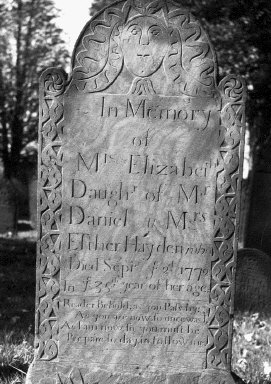 In Memory
of
Mrs. Elizabeth
Daughtr of Mr
Daniel & Mrs
Esther Hayden who
Died Septr ye 3d 1772
In ye 35th year of her age
Reader Behold as you Pass by
As you are now so once was I
As I am now so you must be
Prepare to die & follow me